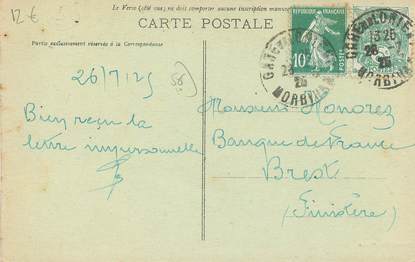 12€
Le Verso (côté vue) ne doit comporter aucune inscription
CARTE POSTALE
Partie exclusivement réservée à la Correspondance
26/7/25
58
Bien reçu la
lettre impersonnelle
Monsieur Honorez
Banque de France
Brest
(Finistère)
RÉPUBLIQUE FRANÇAISE
10c
POSTES
MORBIHAN
13 25
26
25
MORBIHAN